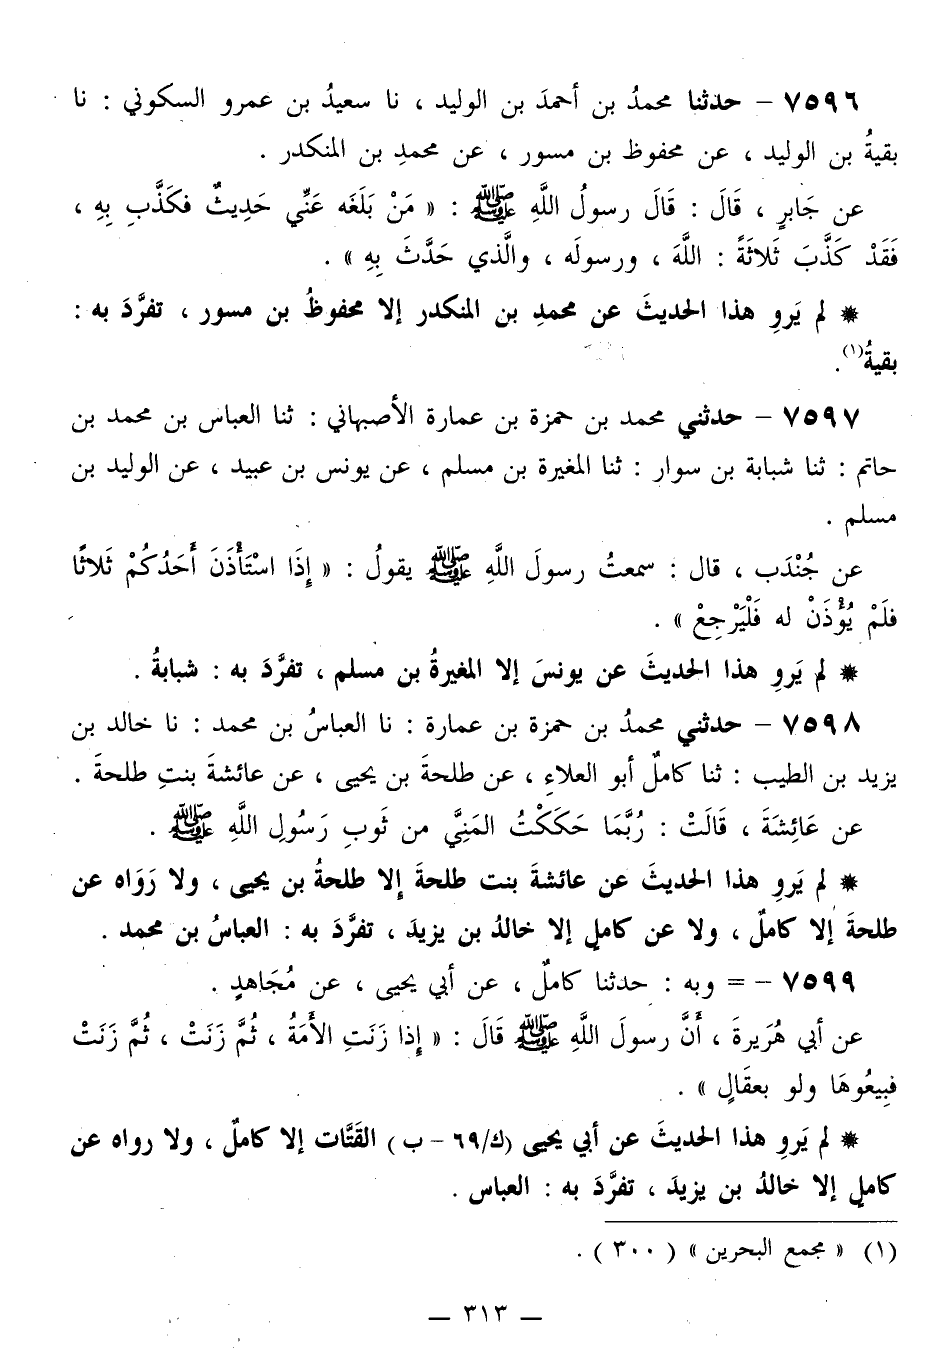 ٧٥٩٦ – حدثنا محمدُ بن أحمدَ بن الوليد ، نا سعيدُ بن عمرو السكوني : نا
بقيةُ بن الوليد ، عن محفوظ بن مسور ، عن محمدِ بن المنكدر .
عن جَابرٍ ، قَالَ : قَالَ رسولُ اللَّهِ ﷺ : « مَنْ بَلَغَه عَنِّي حَدِيثٌ فكَذَّب بِهِ ،
فَقَدْ كَذَّبَ ثَلاثَةً : اللَّهَ ، ورسولَه ، والَّذي حَدَّثَ بِهِ » .
* لم يَروِ هذا الحديثَ عن محمدِ بن المنكدر إلا محفوظُ بن مسور ، تفرَّدَ به :
بقيةُ(١).
٧٥٩٧ – حدثني محمد بن حمزة بن عمارة الأصبهاني : ثنا العباس بن محمد بن
حاتم : ثنا شبابة بن سوار : ثنا المغيرة بن مسلم ، عن يونس بن عبيد ، عن الوليد بن
مسلم .
عن جُنْدَب ، قال : سمعتُ رسولَ اللَّهِ ﷺ يقولُ : « إِذَا اسْتَأْذَنَ أَحَدُكُمْ ثَلاثًا
فلَمْ يُؤْذَنْ له فَلْيَرْجِعْ » .
* لم يَروِ هذا الحديثَ عن يونسَ إلا المغيرةُ بن مسلم ، تفرَّدَ به : شبابةُ .
٧٥٩٨ – حدثني محمدُ بن حمزة بن عمارة : نا العباسُ بن محمد : نا خالد بن
يزيد بن الطيب : ثنا كاملٌ أبو العلاءِ ، عن طلحةَ بن يحيى ، عن عائشةَ بنتِ طلحةَ .
عن عَائِشَةَ ، قَالَتْ : رُبَّمَا حَكَكْتُ المَنِيَّ من ثَوبِ رَسُولِ اللَّهِ ﷺ .
* لم يَروِ هذا الحديثَ عن عائشةَ بنت طلحةَ إلا طلحةُ بن يحيى ، ولا رَوَاه عن
طلحةَ إلا كاملٌ ، ولا عن كاملٍ إلا خالدُ بن يزيدَ ، تفرَّدَ به : العباسُ بن محمد .
٧٥٩٩ – = وبه : حدثنا كاملٌ ، عن أبي يحيى ، عن مُجَاهدٍ .
عن أبي هُرَيرةَ ، أَنَّ رسولَ اللَّهِ ﷺ قَالَ : « إِذا زَنَتِ الأَمَةُ ، ثُمَّ زَنَتْ ، ثُمَّ زَنَتْ
فبِيعُوهَا ولو بعقَالٍ » .
* لم يَروِ هذا الحديثَ عن أبي يحيى (ك/٦٩ – ب) القَتَّات إلا كاملٌ ، ولا رواه عن
كاملٍ إلا خالدُ بن يزيدَ ، تفرَّدَ به : العباس .
(١) « مجمع البحرين » (٣٠٠) .
– ٣١٣ –